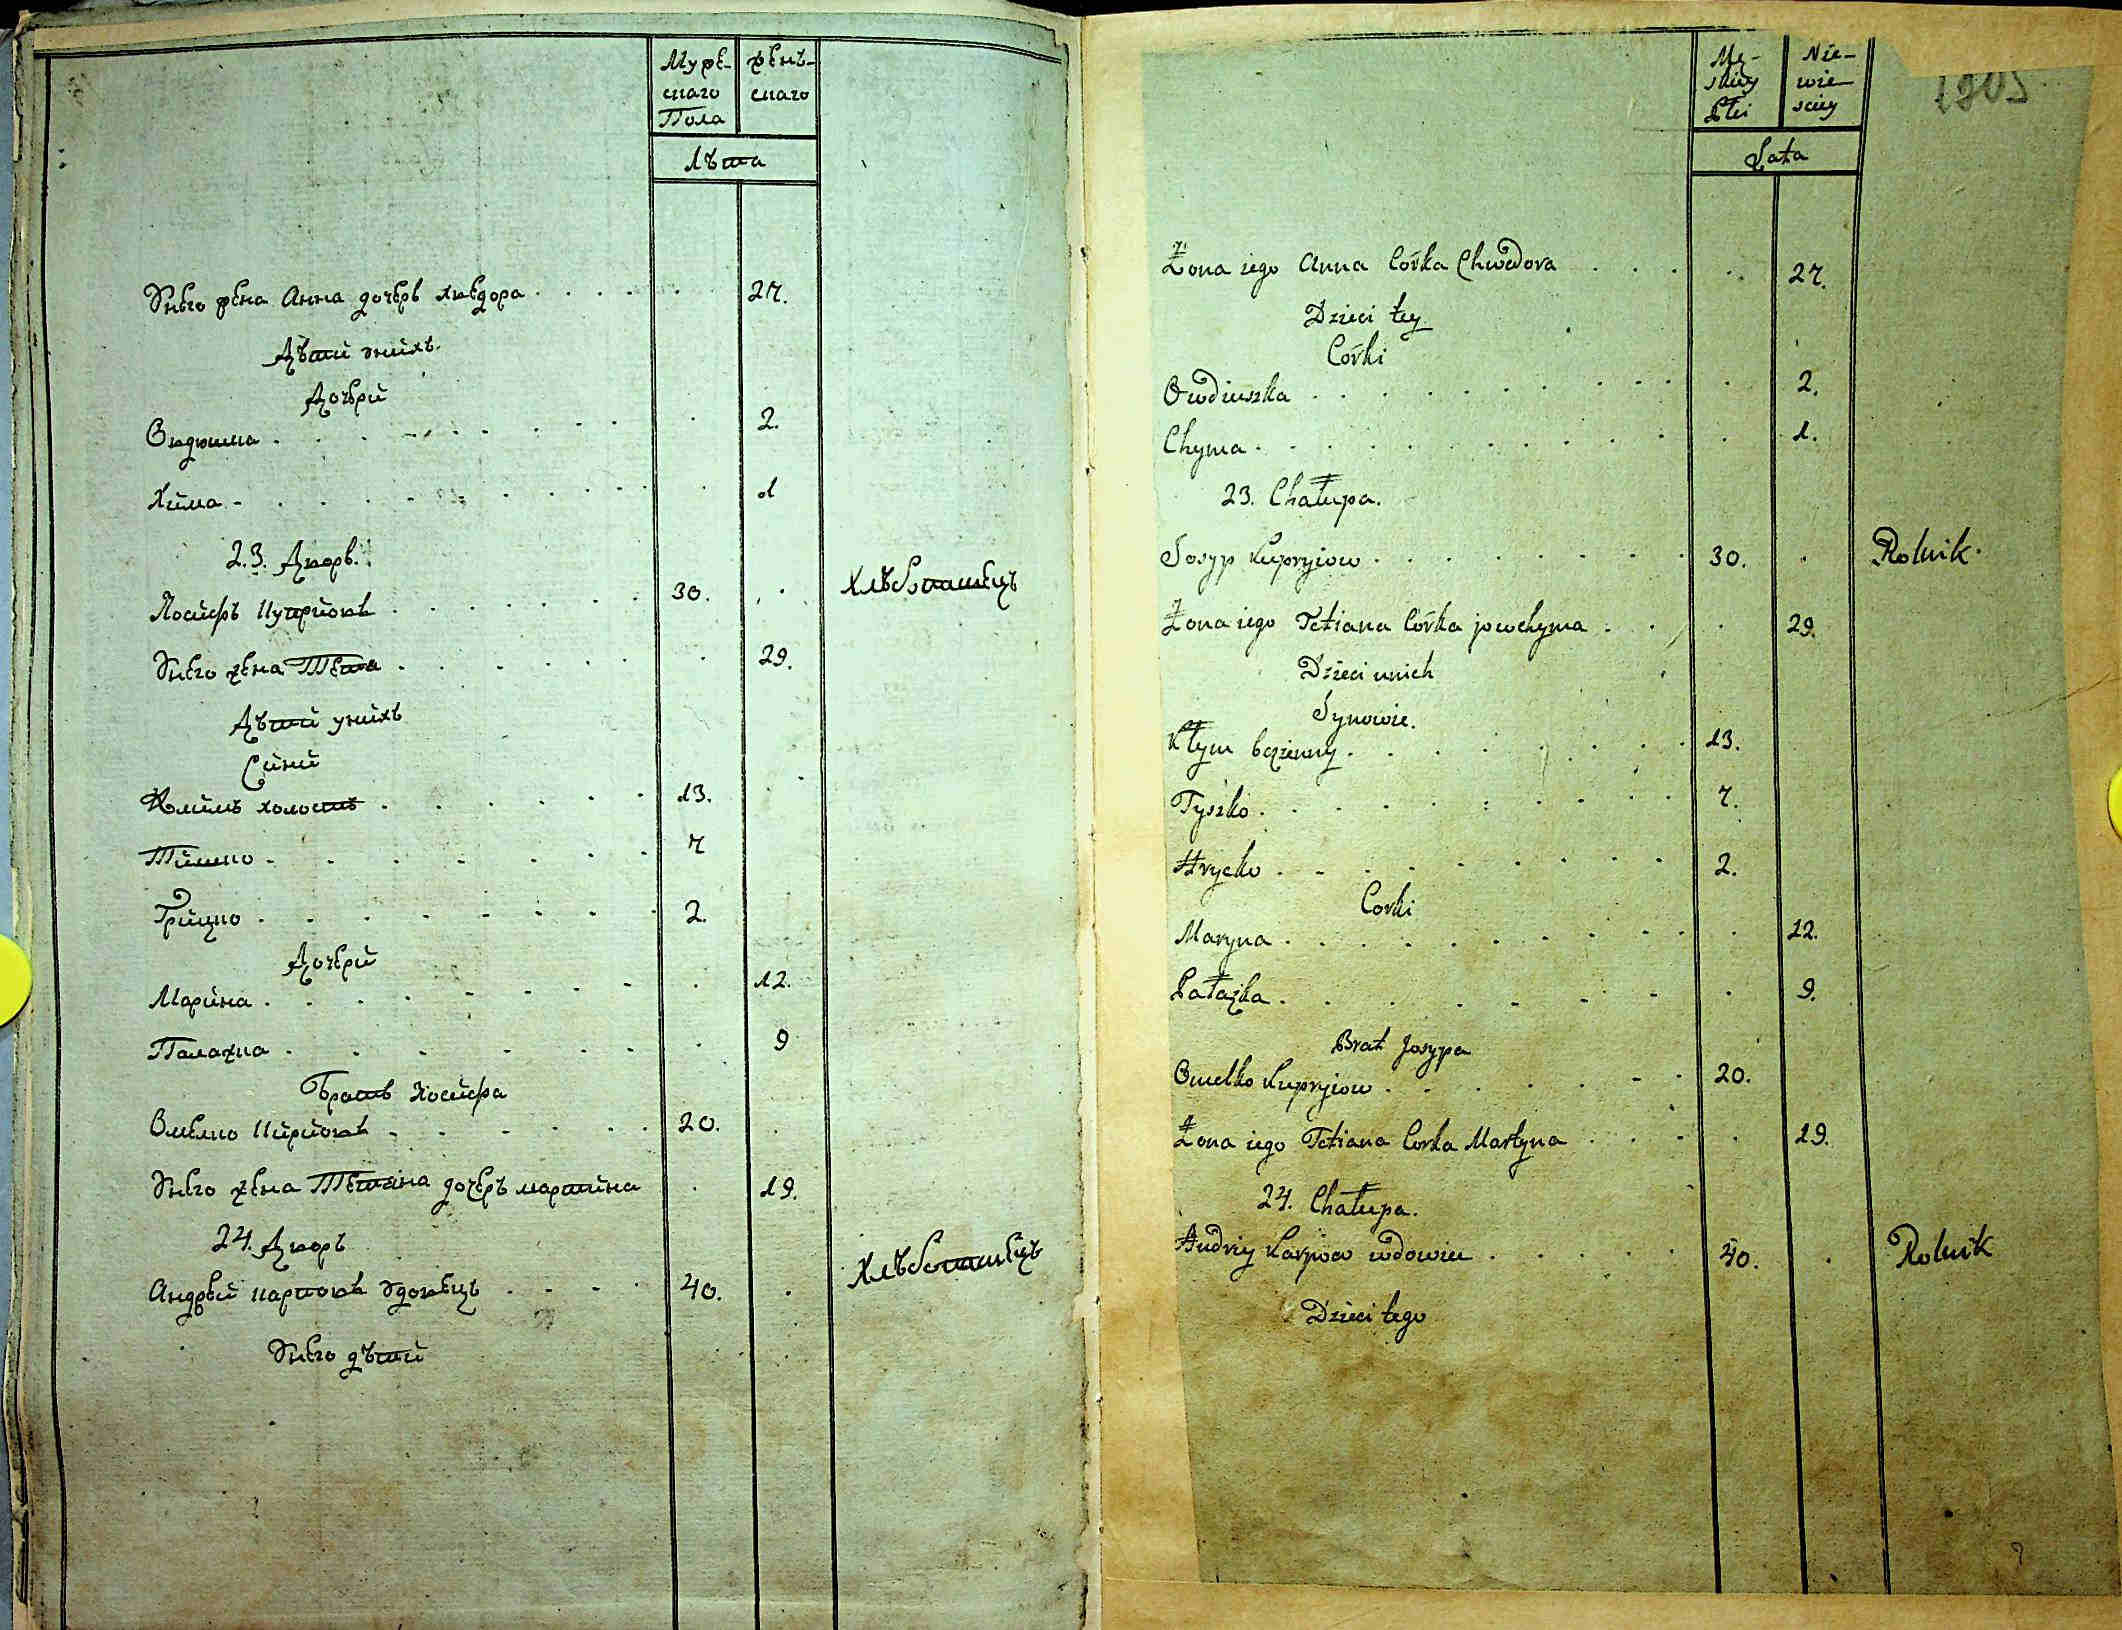 Мужескаго Пола
Женьскаго
Лѣта
Унего жена Анна дочерь хведора 27.
Дѣти унихъ.
Дочери
Овдюшка 2.
Хима 1
23. Дворъ.
Йосифъ Куприовъ 30. Хлѣбопашецъ
Унего жена Тетяна 29.
Дѣти унихъ
Сини
Климъ холостъ 13.
Тишко 7
Грицко 2.
Дочери
Марина 12.
Палажка 9
Братъ Йосифа
Омелко Куприовъ 20.
Унего жена Тетяна дочеръ мартина 19.
24. Дворъ
Андрей карповъ вдовецъ 40. Хлѣбопашецъ
Унего дѣти
Mę-
skiey
Płci
Nie-
wie-
sciey
Lata
Żona iego Anna Corka Chwedora 27.
Dzieci tey
Corki
Owdiuszka 2.
Chyma 1.
23. Chałupa.
Josyp Kupryiow 30. Rolnik.
Żona iego Tetiana Corka jowchyma 29.
Dzieci unich
Synowie.
Kłym bezżenny 13.
Tyszko 7.
Hrycko 2.
Corki
Maryna 12.
Pałażka 9.
Brat Josypa
Omelko Kupryiow 20.
Żona iego Tetiana Corka Martyna 19.
24. Chałupa.
Andriy Karpow wdowiec 40. Rolnik
Dzieci tego